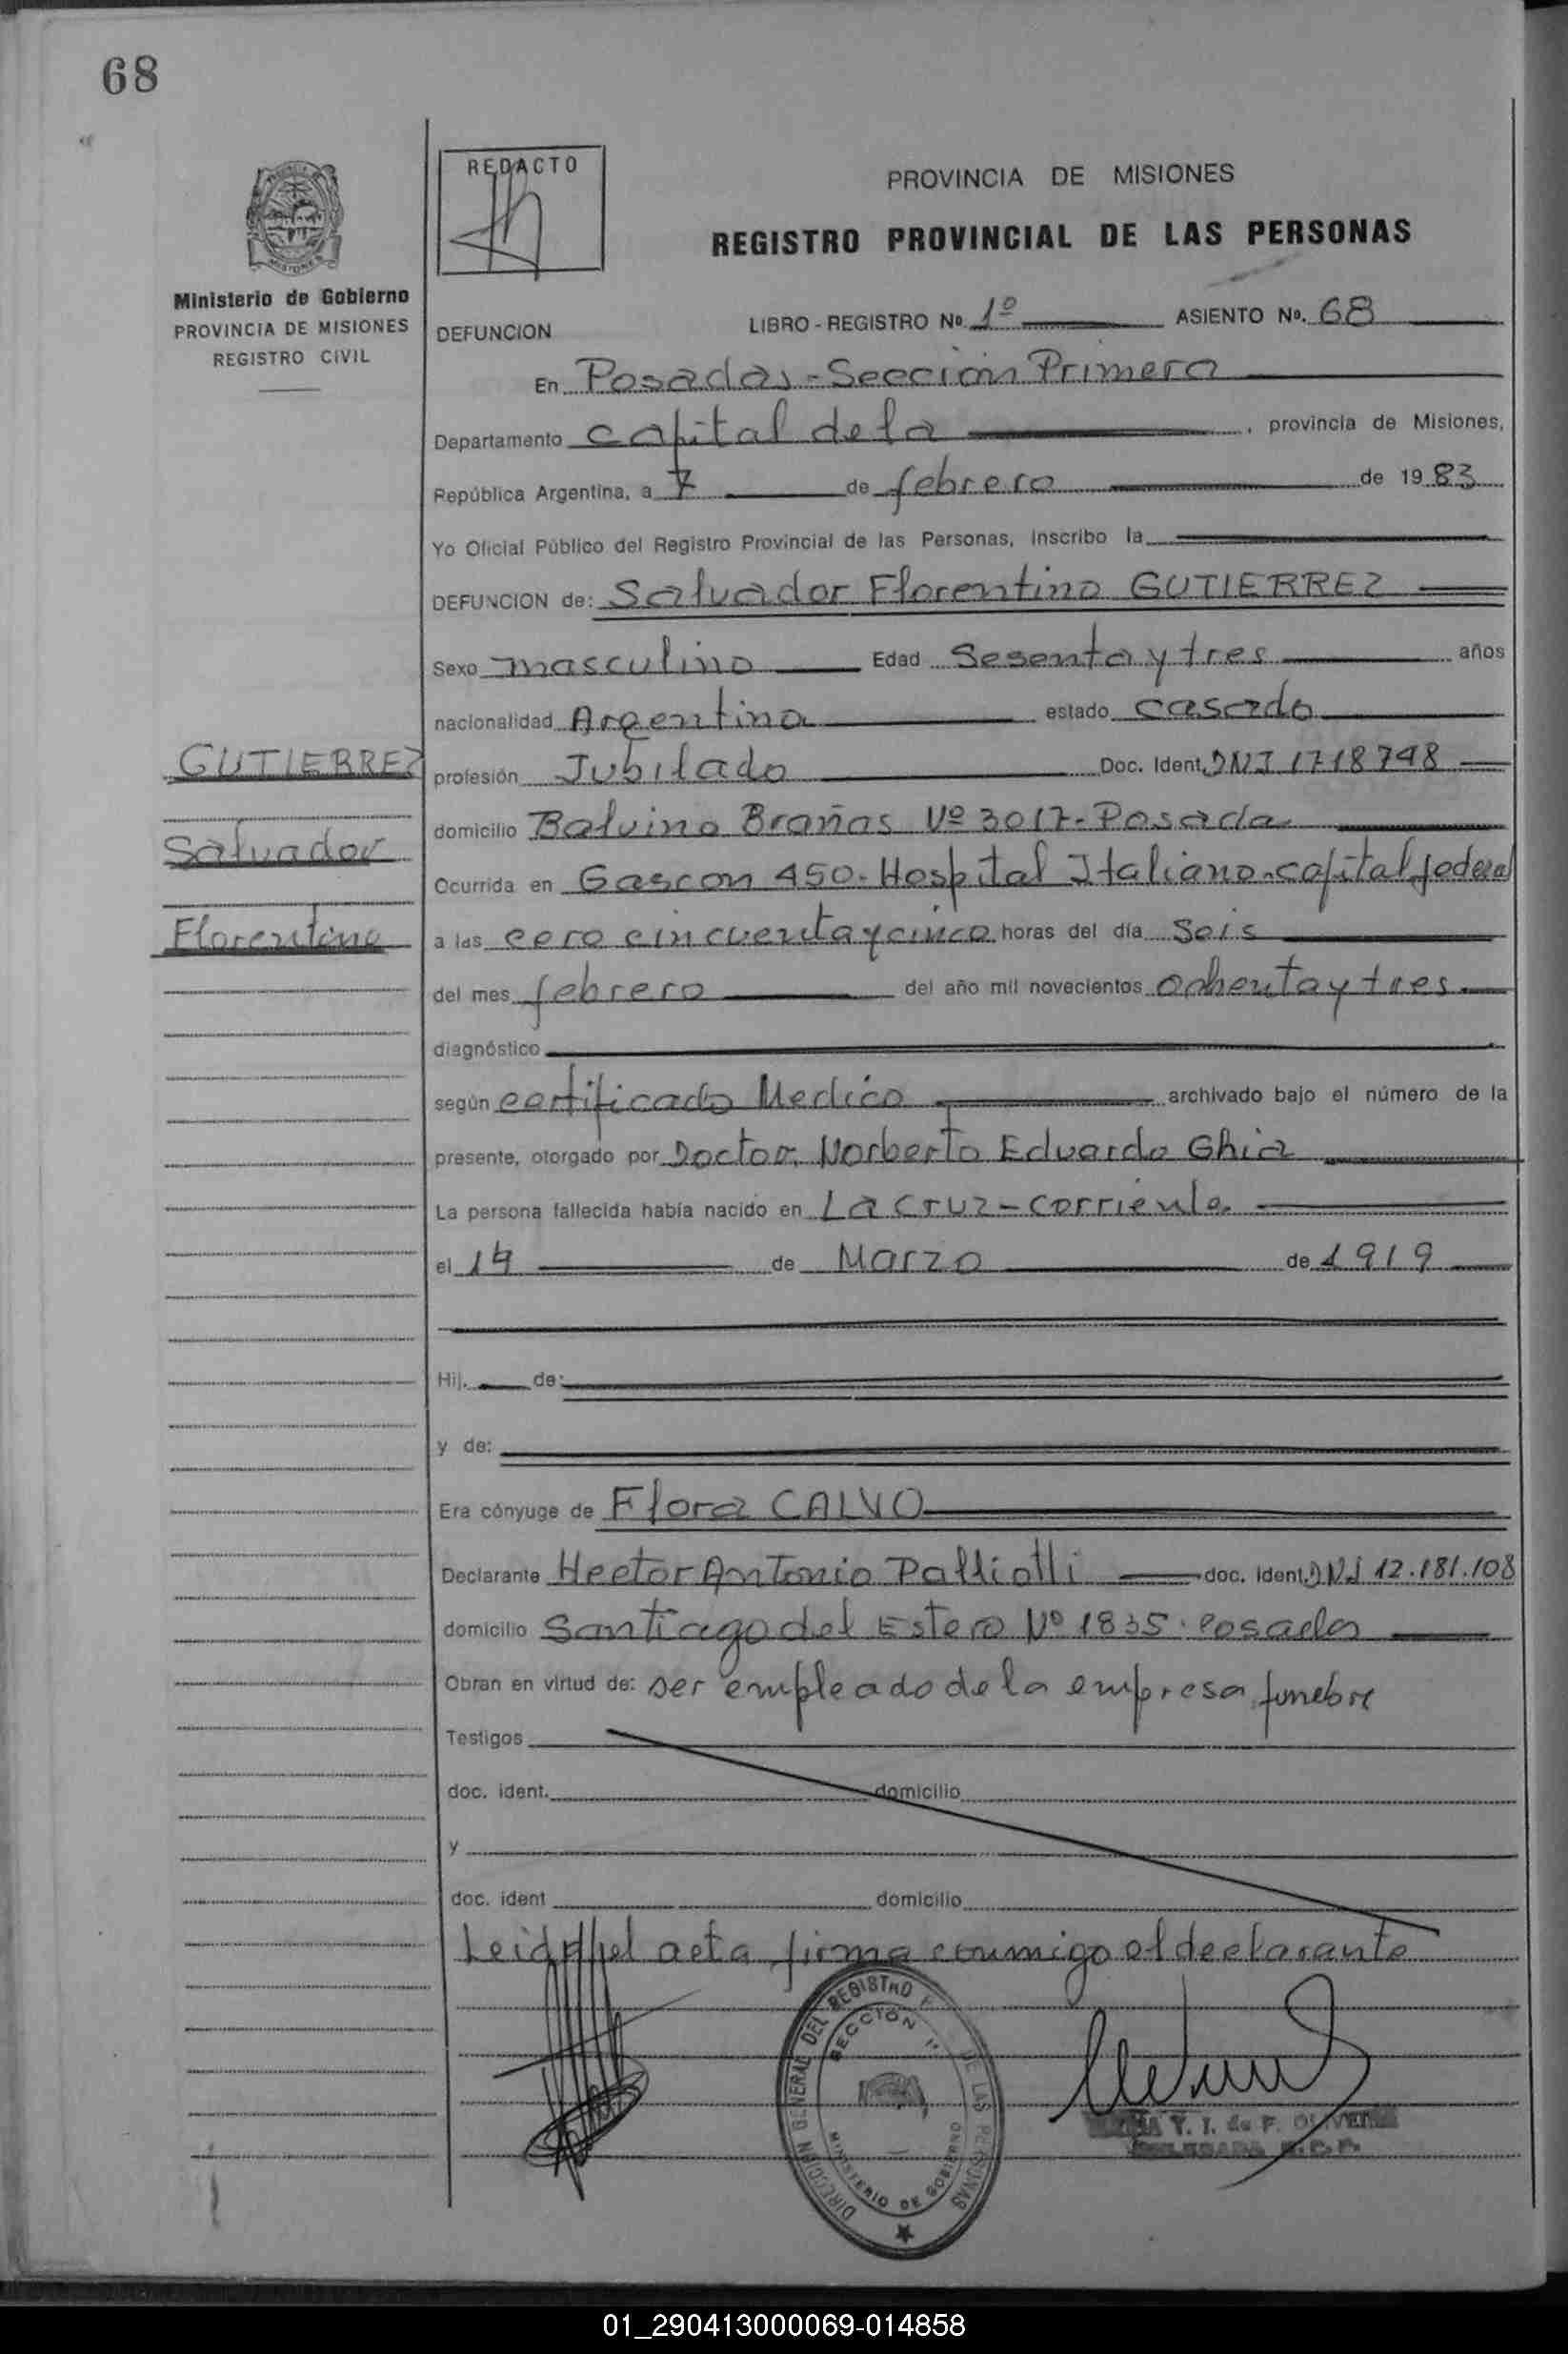 68
REDACTO
PROVINCIA DE MISIONES
REGISTRO PROVINCIAL DE LAS PERSONAS
Ministerio de Gobierno
PROVINCIA DE MISIONES
REGISTRO CIVIL
DEFUNCION LIBRO - REGISTRO No. 1º ASIENTO No. 68
En Posadas - Sección Primera
Departamento capital de la , provincia de Misiones,
República Argentina, a 7 de febrero de 1983
Yo Oficial Público del Registro Provincial de las Personas, inscribo la
DEFUNCION de: Salvador Florentino GUTIERREZ
Sexo masculino Edad Sesenta y tres años
nacionalidad Argentina estado casado
GUTIERREZ
Salvador
Florentino
profesión Jubilado Doc. Ident. DNI 1718748
domicilio Balvino Brañas Nº 3017 - Posadas
Ocurrida en Gascon 450 - Hospital Italiano - capital federal
a las cero cincuenta y cinco horas del día Seis
del mes febrero del año mil novecientos ochenta y tres
diagnóstico
según certificado Medico archivado bajo el número de la
presente, otorgado por Doctor Norberto Eduardo Ghia
La persona fallecida había nacido en La Cruz - Corrientes
el 14 de Marzo de 1919
Hij. de:
y de:
Era cónyuge de Flora CALVO
Declarante Hector Antonio doc. Ident. DNI 12.181.108
domicilio Santiago del Estero Nº 1835 - Posadas
Obran en virtud de: ser empleado de la empresa funebre
Testigos
doc. ident. domicilio
y
doc. ident domicilio
Leida el acta firma conmigo el declarante
DIRECCION GENERAL DEL REGISTRO P DE LAS PERSONAS
SECCION 1ª
MINISTERIO DE GOBIERNO
Y. I. de F. OLIVEIRA
01_290413000069-014858